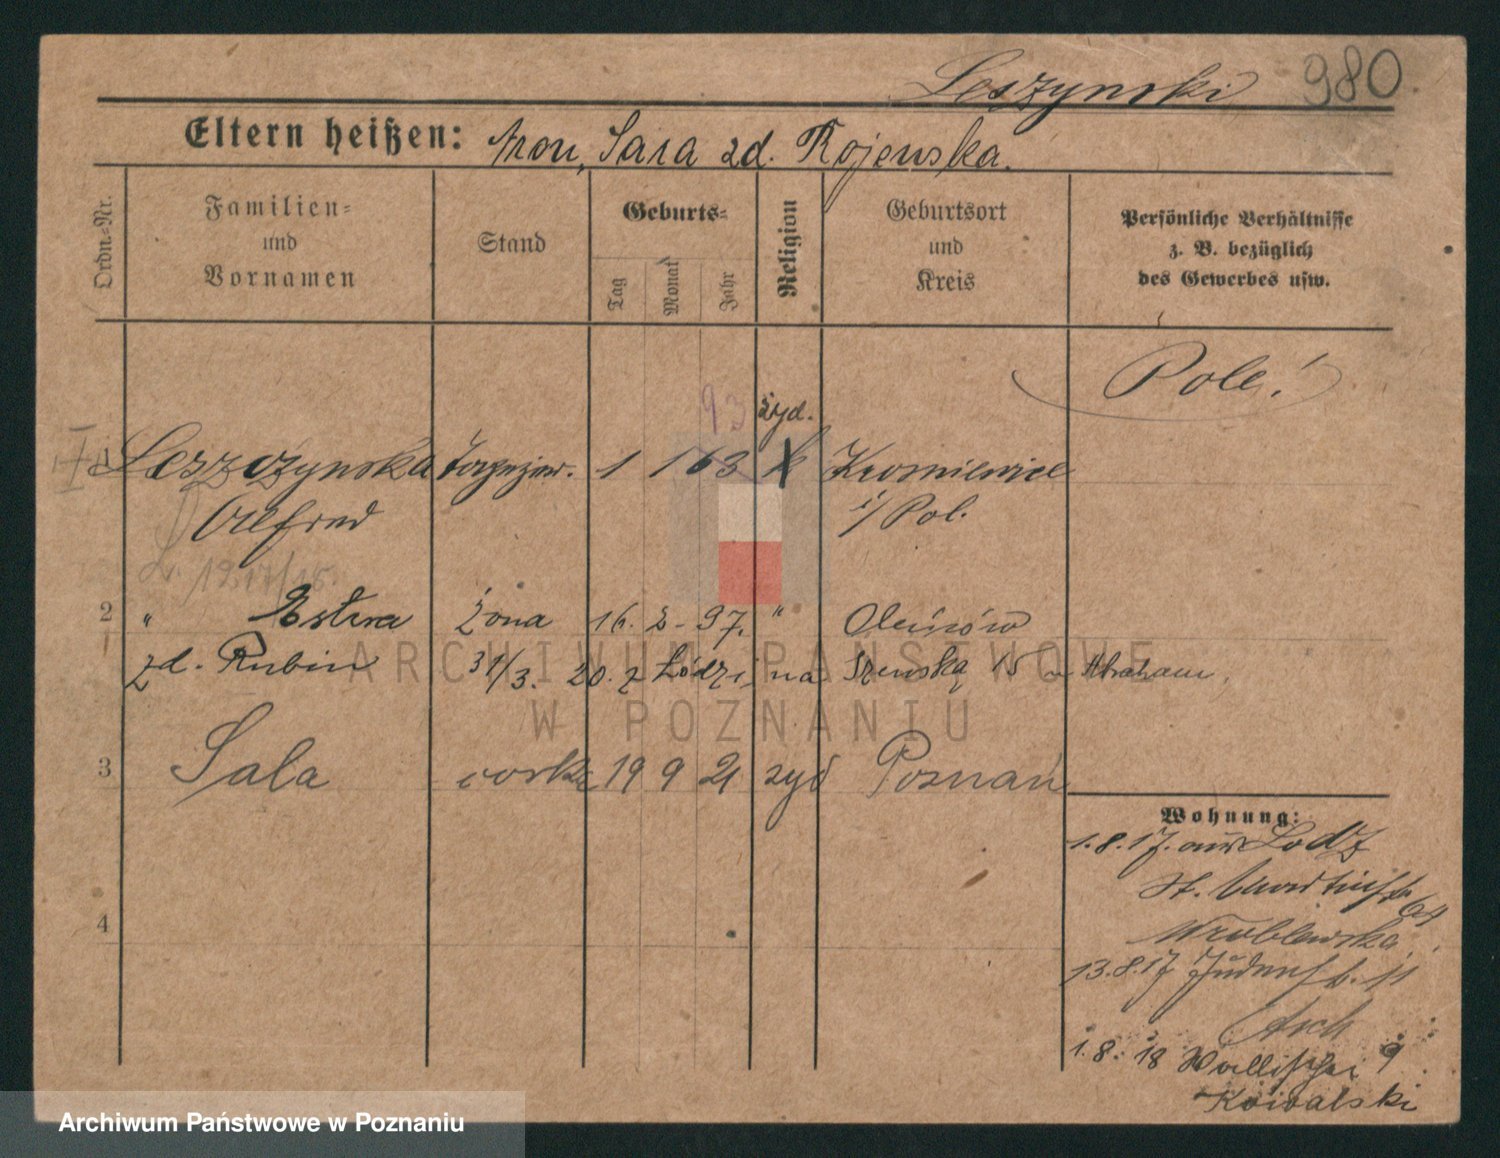 Leszynski 980.
Eltern heißen: Aron, Sara zd. Rojewska.
Ordn.-Nr.
Familien-
und
Vornamen
Stand
Geburts-
Tag
Monat
Jahr
Religion
Geburtsort
und
Kreis
Persönliche Verhältnisse
z. B. bezüglich
des Gewerbes usw.
Pole!
93 żyd.
1 Leszczynska 1 1 63
Alfred i/ Pol.
2 " Estera żona 16. 2 - 97. "
zd. Rubin 31/3. 20. z Łodzi, na Szewską 15 Abraham.
ARCHIWUM PAŃSTWOWE
W POZNANIU
3 Sala corka 19 9 21 żyd Poznań
Wohnung:
1.8.17. aus Lodz
St. Martinstr. 64
Wroblewska
4
13.8.17 Judenstr. 11
Asch
1.8.18 Wallischei 9
Kowalski
Archiwum Państwowe w Poznaniu